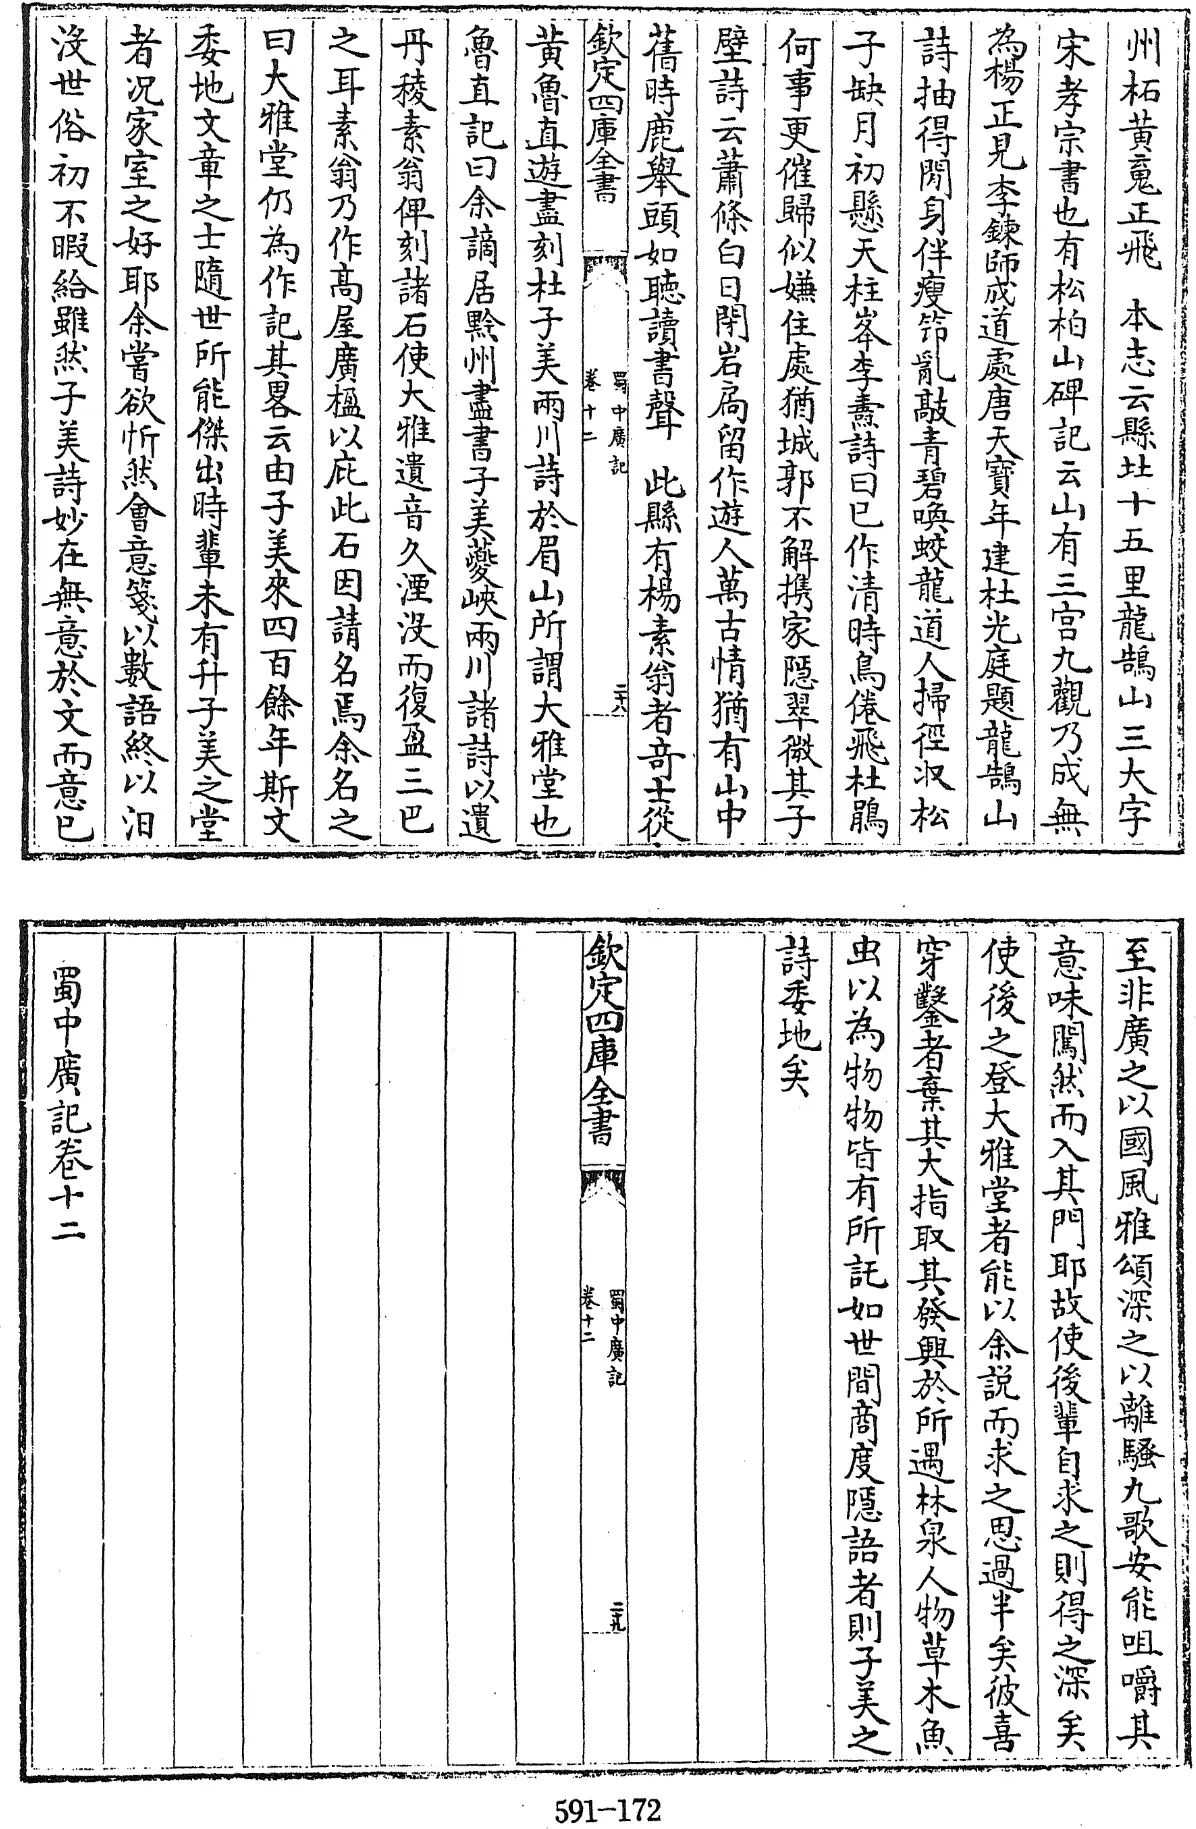 州柘黃寬正飛　本志云縣北十五里龍鵠山三大字
宋孝宗書也有松柏山碑記云山有三宫九觀乃成無
為楊正見李鍊師成道處唐天寶年建杜光庭題龍鵠山
詩抽得閒身伴瘦笻亂敲青碧喚蛟龍道人掃徑収松
子缺月初懸天柱峯李燾詩曰已作清時鳥倦飛杜鵑
何事更催歸似嫌住處猶城郭不解携家隱翠微其子
壁詩云蕭條白日閉岩扃留作遊人萬古情猶有山中
舊時鹿舉頭如聽讀書聲　此縣有楊素翁者竒士從
欽定四庫全書
蜀中廣記
卷十二
二十八
黃魯直遊盡刻杜子美兩川詩於眉山所謂大雅堂也
魯直記曰余謫居黔州盡書子美夔峽兩川諸詩以遺
丹稜素翁俾刻諸石使大雅遺音久湮沒而復盈三巴
之耳素翁乃作髙屋廣楹以庇此石因請名焉余名之
曰大雅堂仍為作記其畧云由子美來四百餘年斯文
委地文章之士隨世所能傑出時輩未有升子美之堂
者况家室之好耶余嘗欲忻然會意箋以數語終以汨
沒世俗初不暇給雖然子美詩妙在無意於文而意已
至非廣之以國風雅頌深之以離騷九歌安能咀嚼其
意味闖然而入其門耶故使後輩自求之則得之深矣
使後之登大雅堂者能以余説而求之思過半矣彼喜
穿鑿者棄其大指取其發興於所遇林泉人物草木魚
虫以為物物皆有所託如世間商度隱語者則子美之
詩委地矣
欽定四庫全書
蜀中廣記
卷十二
二十九
蜀中廣記卷十二
591-172